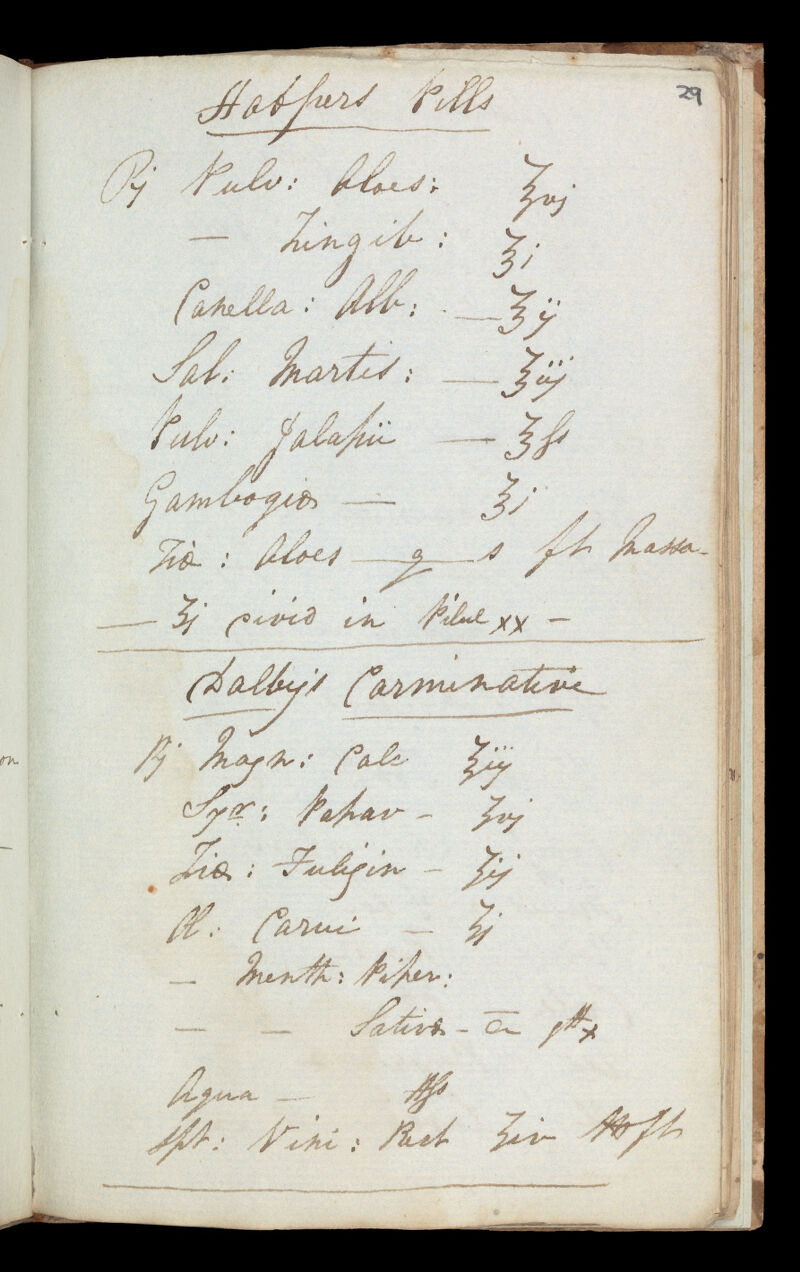 29
Hatfpers Pills
℞ Pulv: Aloes: ʒvj
— Zingib: ʒj
Canella: Alb: — ʒij
Sal: Martis: — ʒiij
Pulv: Jalapii — ʒſs
Gambogiæ — ʒj
Tiæ: Aloes — q — s ft Massa —
— ʒj Divid in Pilul xx —
Dalbys Carminative
℞ Magn: Calc ʒiij
Syr: Papav — ʒvj
Tiæ: Fuligin — ʒij
Ol: Carui — ʒj
— Menth: Piper:
— — Sativæ — āā gtt x
Aqua — ℔ſs
Spt: Vini: Rect ʒiv ft
on